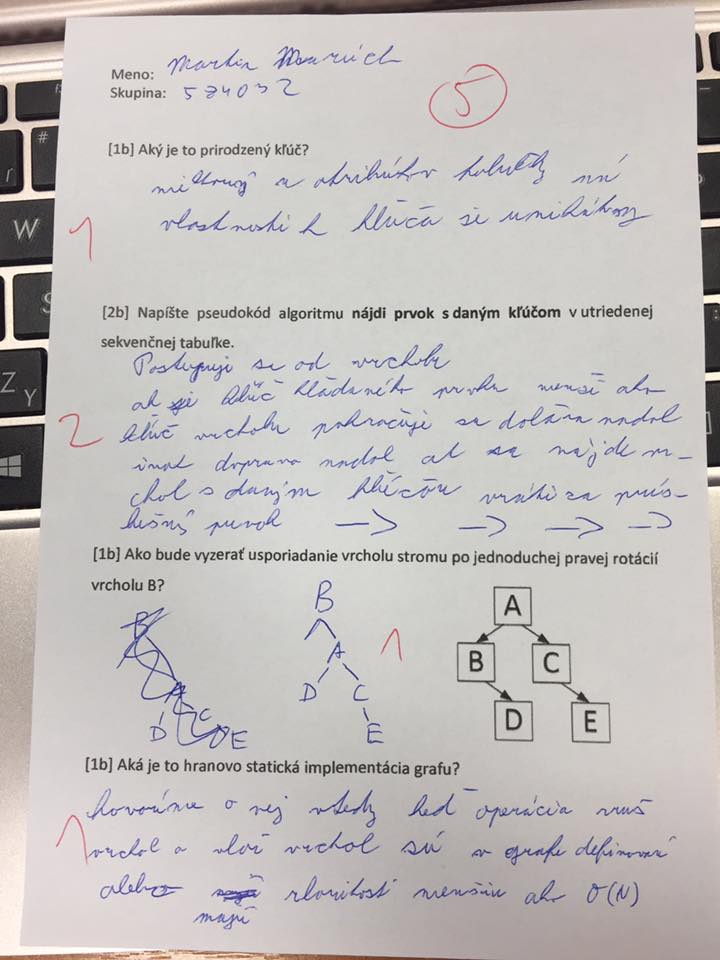 Meno: Martin
Skupina: 5ZY032
5
[1b] Aký je to prirodzený kľúč?
a atribútov má
vlastnosti kľúča
1
[2b] Napíšte pseudokód algoritmu nájdi prvok s daným kľúčom v utriedenej
sekvenčnej tabuľke.
Postupuje sa od vrcholu
ak je klúč hľadaného prvku menší ako
klúč vrcholu pokračuje sa doľava nadol
2
inak doprava nadol ak sa nájde vr–
chol s daným kľúčom vráti sa prís–
lušný prvok → → → →
[1b] Ako bude vyzerať usporiadanie vrcholu stromu po jednoduchej pravej rotácií
vrcholu B?
B
A
D C
E
1
A
B C
D E
D E
[1b] Aká je to hranovo statická implementácia grafu?
hovoríme o nej vtedy keď operácia zruš
1
vrchol a vlož vrchol sú v grafe definované
alebo zložitosť menšiu ako O(N)
majú
W
S
Z Y
#